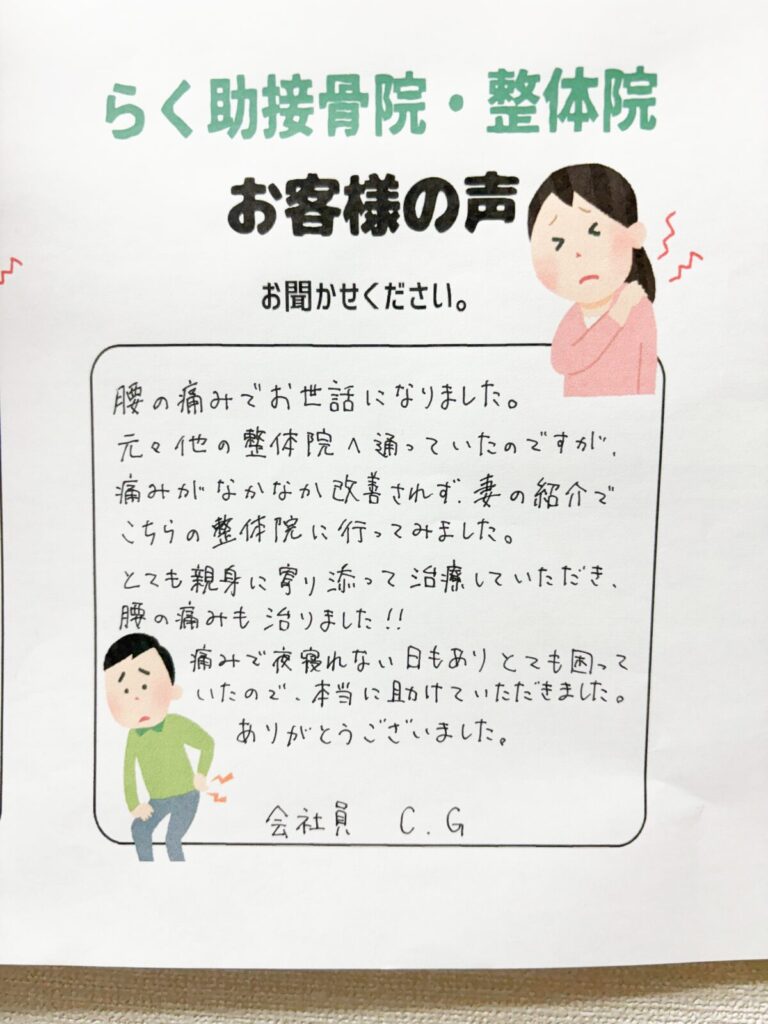 らく助接骨院・整体院
お客様の声
お聞かせください。
腰の痛みでお世話になりました。
元々他の整体院へ通っていたのですが、
痛みがなかなか改善されず、妻の紹介で
こちらの整体院に行ってみました。
とても親身に寄り添って治療していただき、
腰の痛みも治りました!!
痛みで夜寝れない日もありとても困って
いたので、本当に助けていただきました。
ありがとうございました。
会社員 C.G